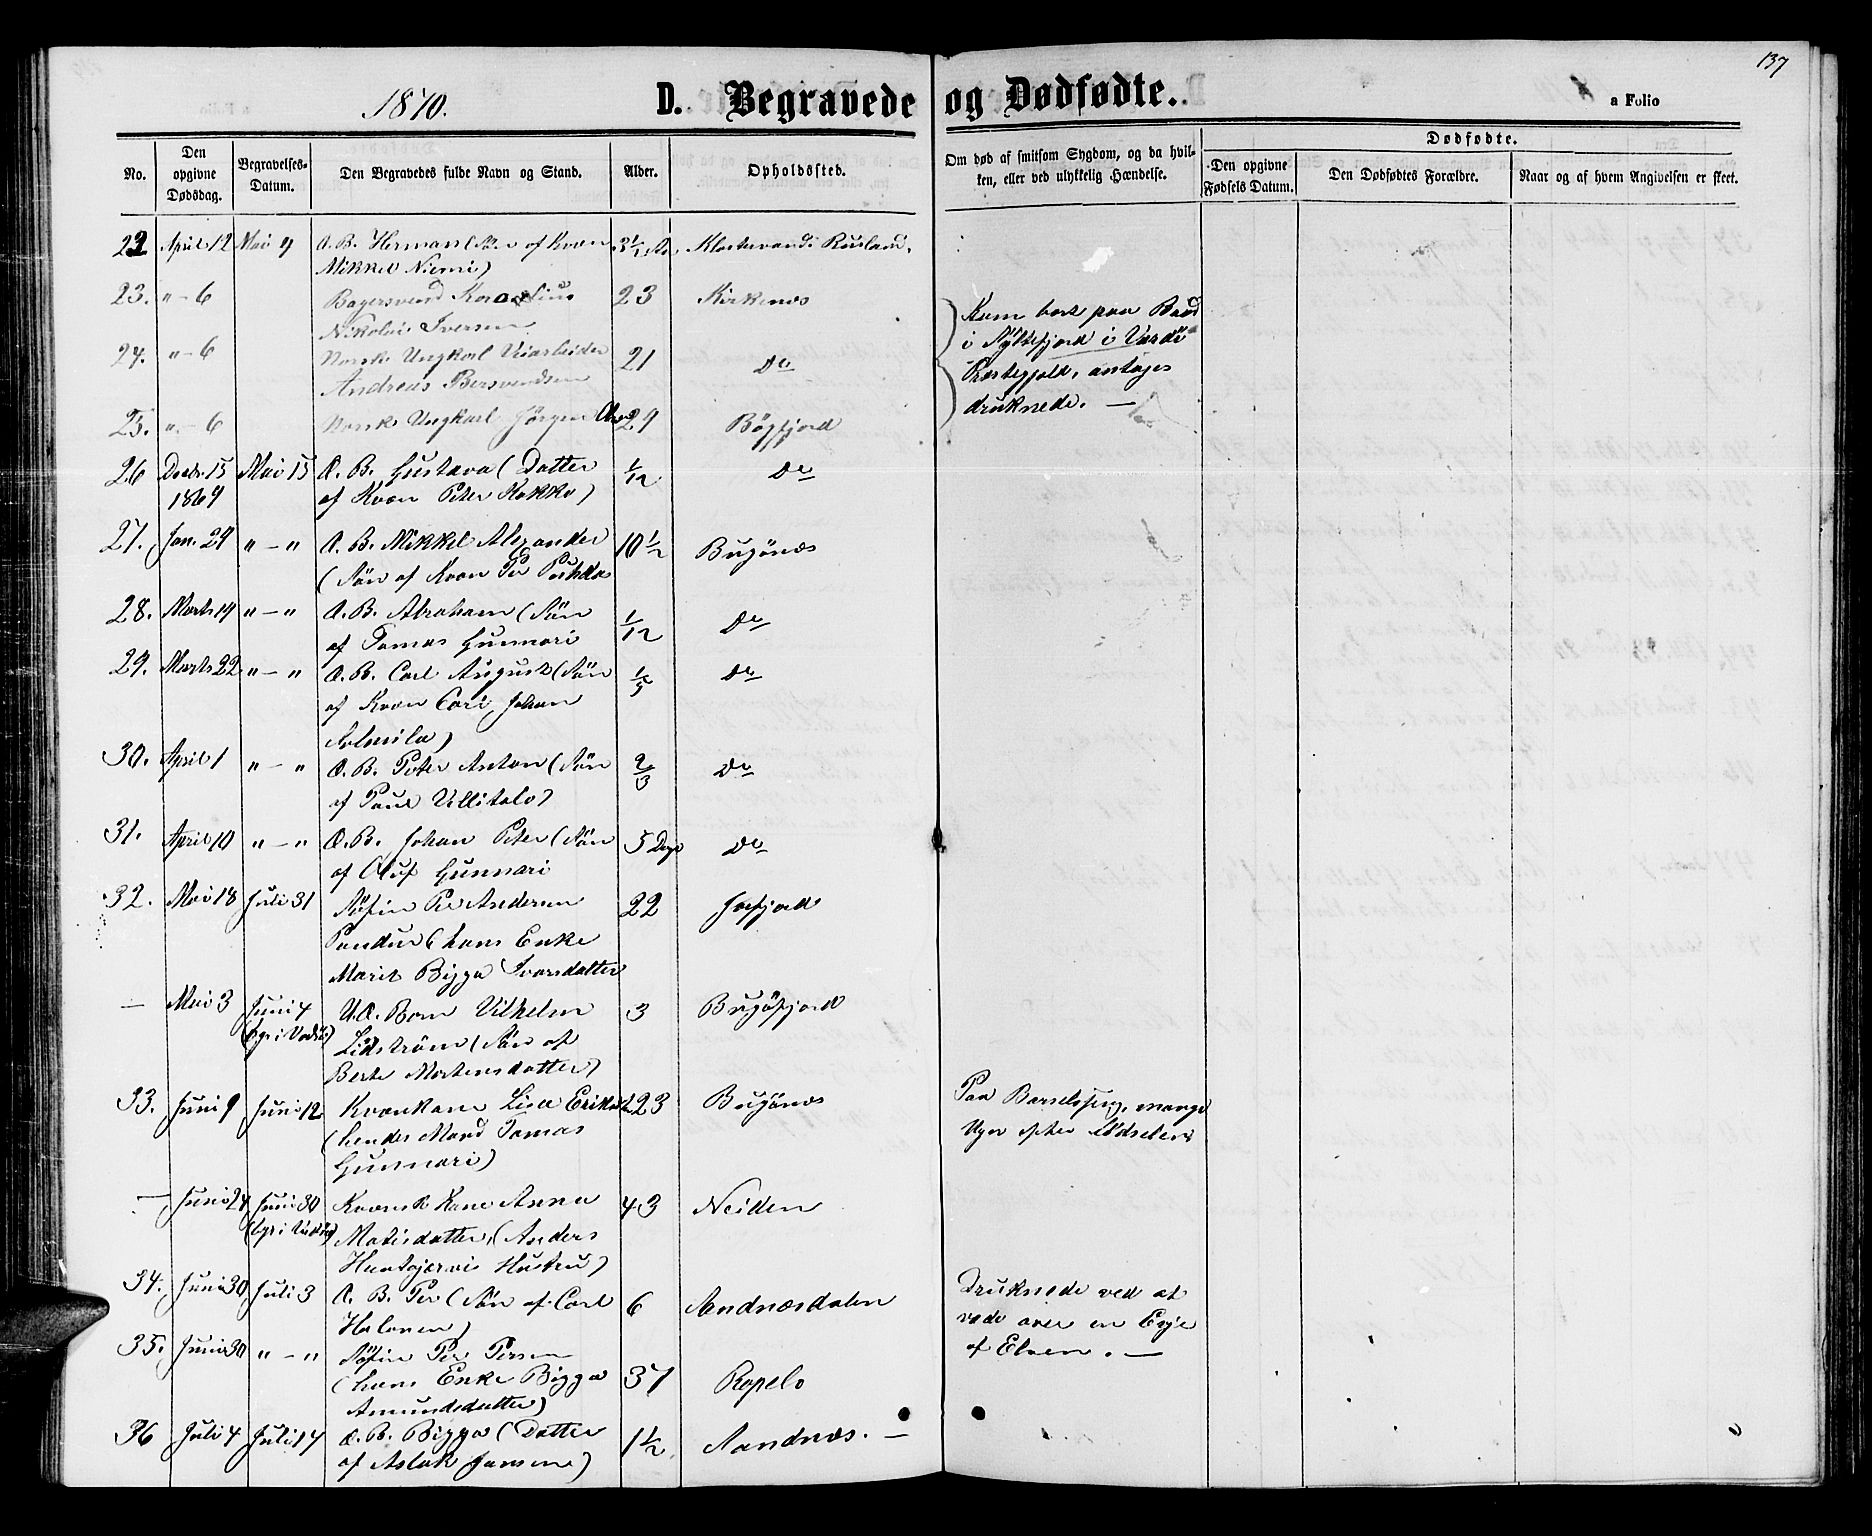 137
1870.
D. Begravede og Dødfødte.
a Folio
No.
Den opgivne Dødsdag.
Begravelses-Datum.
Den Begravedes fulde Navn og Stand.
Alder.
Opholdssted.
Om død af smitsom Sygdom, og da hvilken, eller ved ulykkelig Hændelse.
Dødfødte.
Den opgivne Fødsels Datum.
Den Dødfødtes Forældre.
Naar og af hvem Angivelsen er skeet.
22 April 12 Mai 9 Æ. B. Herman (Søn af Kvæn 3½ Klostervand i Rusland.
Mikkel Niemi)
23. " - 6 Bagersvend 23 Kirkenæs
Nikolai Iversen
24. " - 6 Norsk Ungkarl 21 Do
Andreas Bersvendsen
Kom bort paa Baad
i Syltefjord i Vardö
Præstegjeld, antages
druknede. —
25. " - 6 Norsk Ungkarl Jörgen 29 Bögfjord
26 Decbr. 15 Mai 15 Æ. B. Gustava (Datter 1/12 Do
1869 af Kvæn Peter Kokko)
27. Jan. 29 " - " Æ. B. Mikkel Alexander 10½ Bugönæs
(Søn af Kvæn Per
28. Marts 14 " - " Æ. B. Abraham (Søn 1/12 Do
af Tomas Gunnari
29. Marts 22 " - " Æ. B. Carl August (Søn 1/5 Do
af Kvæn Carl Johan
30. April 1 " - " Æ. B. Peter Anton (Søn 2/3 Do
af Paul Vellitalo)
31. April 10 " - " Æ. B. Johan Peter (Søn 5 Dage Do
af Oluf Gunnari
32. Mai 18 Juli 31 Söfin Per Andersen 22 Jarfjord
Pandur (hans Enke
Marit Bigga Ivarsdatter
— Mai 3 Juni 4 U.Æ. Barn Vilhelm 3 Bugöfjord
Lidström (Søn af
Berte Mortensdatter)
33. Juni 9 Juni 12 Kvænkone Lisa 23 Bugönæs
(hendes Mand Tomas
Gunnari)
Paa Barselseng, mange
Uger efter Födselen
— Juni 24 Juni 30 Kvænsk Kone Anna 43 Neiden
Matisdatter, (Anders
Hustru)
34. Juni 30 Juli 3 Æ. B. Per (Søn af Carl 6 Sandnæsdalen
Halonen)
Druknede ved at
vade over en Evje
af Elven. —
35. Juni 30 " - " Söfin Per Persen 37 Ropelv
(hans Enke Bigga
Amundsdatter)
36 Juli 4 Juli 14 Æ. B. Bigga (Datter 1½ Sandnæs. —
af Aslak Jansen)